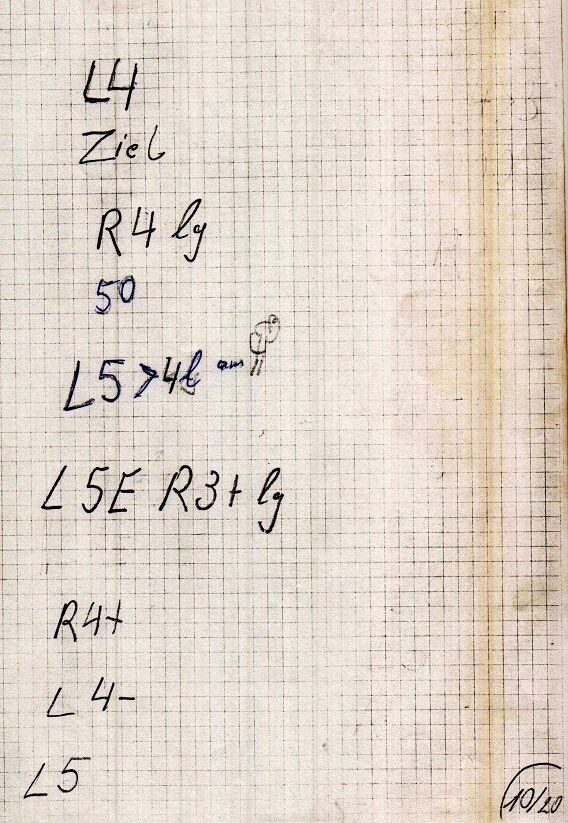 L4
Ziel
R4 lg
50
L5 > 4 am
L5E R3+ lg
R4+
L4-
L5
10/20